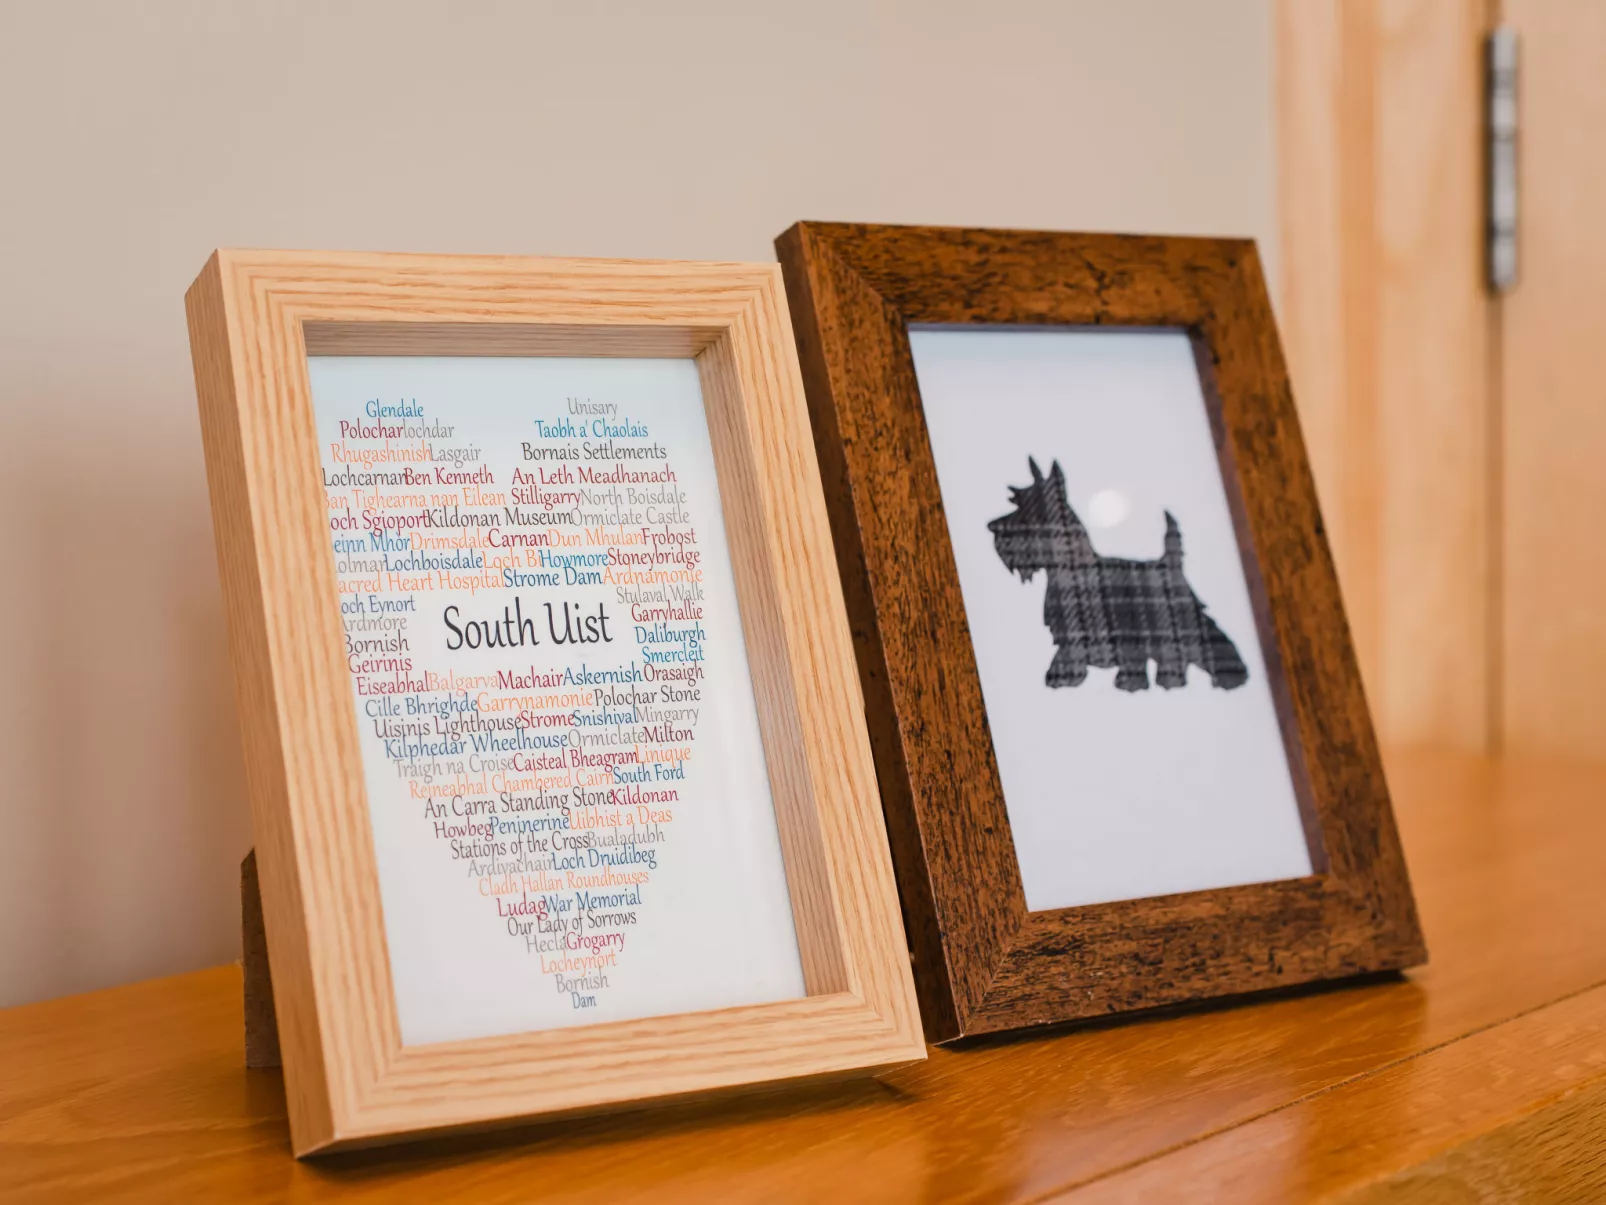 Glendale Unisary
Polochar lochdar Taobh a' Chaolais
Rhugashinish Lasgair Bornais Settlements
Lochcarnan Ben Kenneth An Leth Meadhanach
ban Tighearna nan Eilean Stilligarry North Boisdale
och Sgioport Kildonan Museum Ormiclate Castle
einn Mhor Drimsdale Carnan Dun Mhulan Frobost
olmar Lochboisdale Loch Bi Howmore Stoneybridge
acred Heart Hospital Strome Dam Ardnamonie
och Eynort Stulaval Walk
Ardmore Garryhallie
Bornish South Uist Daliburgh
Geirinis Smercleit
Eiseabhal Balgarva Machair Askernish Orasaigh
Cille Bhrighde Garrynamonie Polochar Stone
Uisinis Lighthouse Strome Snishival Mingarry
Kilphedar Wheelhouse Ormiclate Milton
Traigh na Croise Caisteal Bheagram Linique
Reineabhal Chambered Cairn South Ford
An Carra Standing Stone Kildonan
Howbeg Peninerine Uibhist a Deas
Stations of the Cross Bualadubh
Ardivachair Loch Druidibeg
Cladh Hallan Roundhouses
Ludag War Memorial
Our Lady of Sorrows
Hecla Grogarry
Locheynort
Bornish
Dam